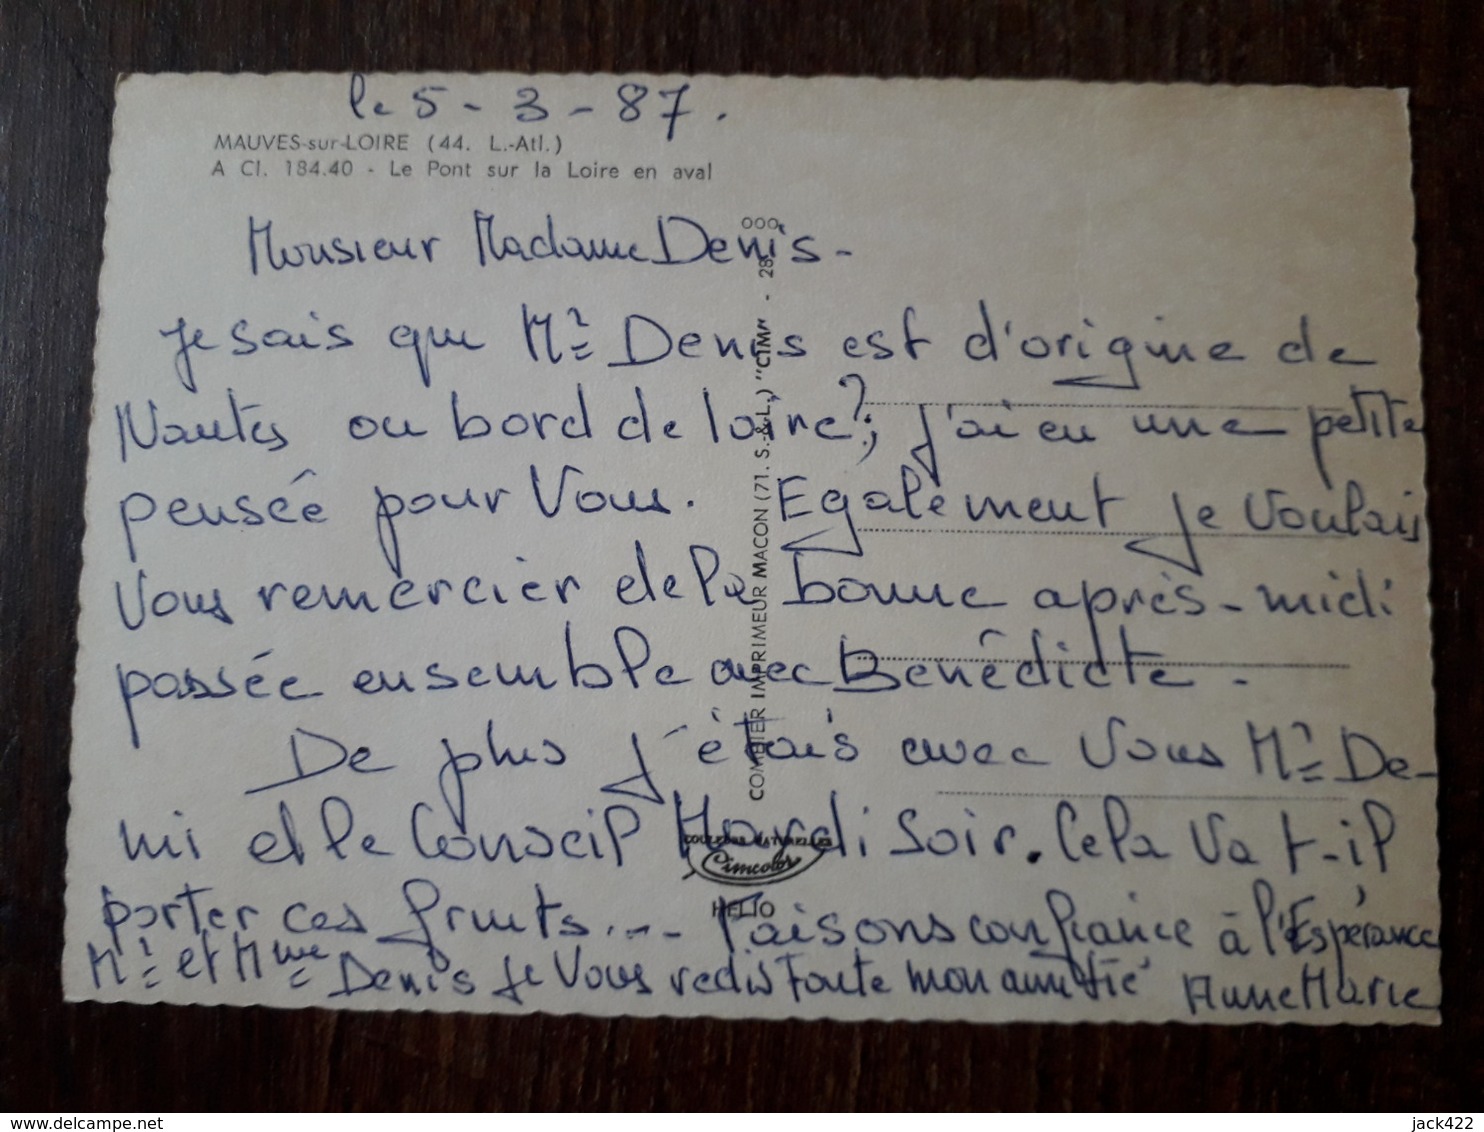 le 5 - 3 - 87.
MAUVES-sur-LOIRE (44. L.-Atl.)
A Cl. 184.40 - Le Pont sur la Loire en aval
Monsieur Madame Denis -
Je sais que Mr Denis est d'origine de
Nantes ou bord de loire?; j'ai eu une petite
pensée pour Vous. Egalement je Voulais
Vous remercier de la bonne après-midi
passée ensemble avec Bénédicte.
De plus j'étais avec Vous Mr De-
nis et le Conseil Mardi Soir. Cela Va t-il
porter ces fruits... Faisons confiance à l'Espérance
Mr et Mme Denis je Vous redis toute mon amitié Anne Marie
COMBIER IMPRIMEUR MACON (71. S.-&-L.) "CIM" - 28
000
COULEURS NATURELLES
Cimcolor
HELIO
delcampe.net
jack422